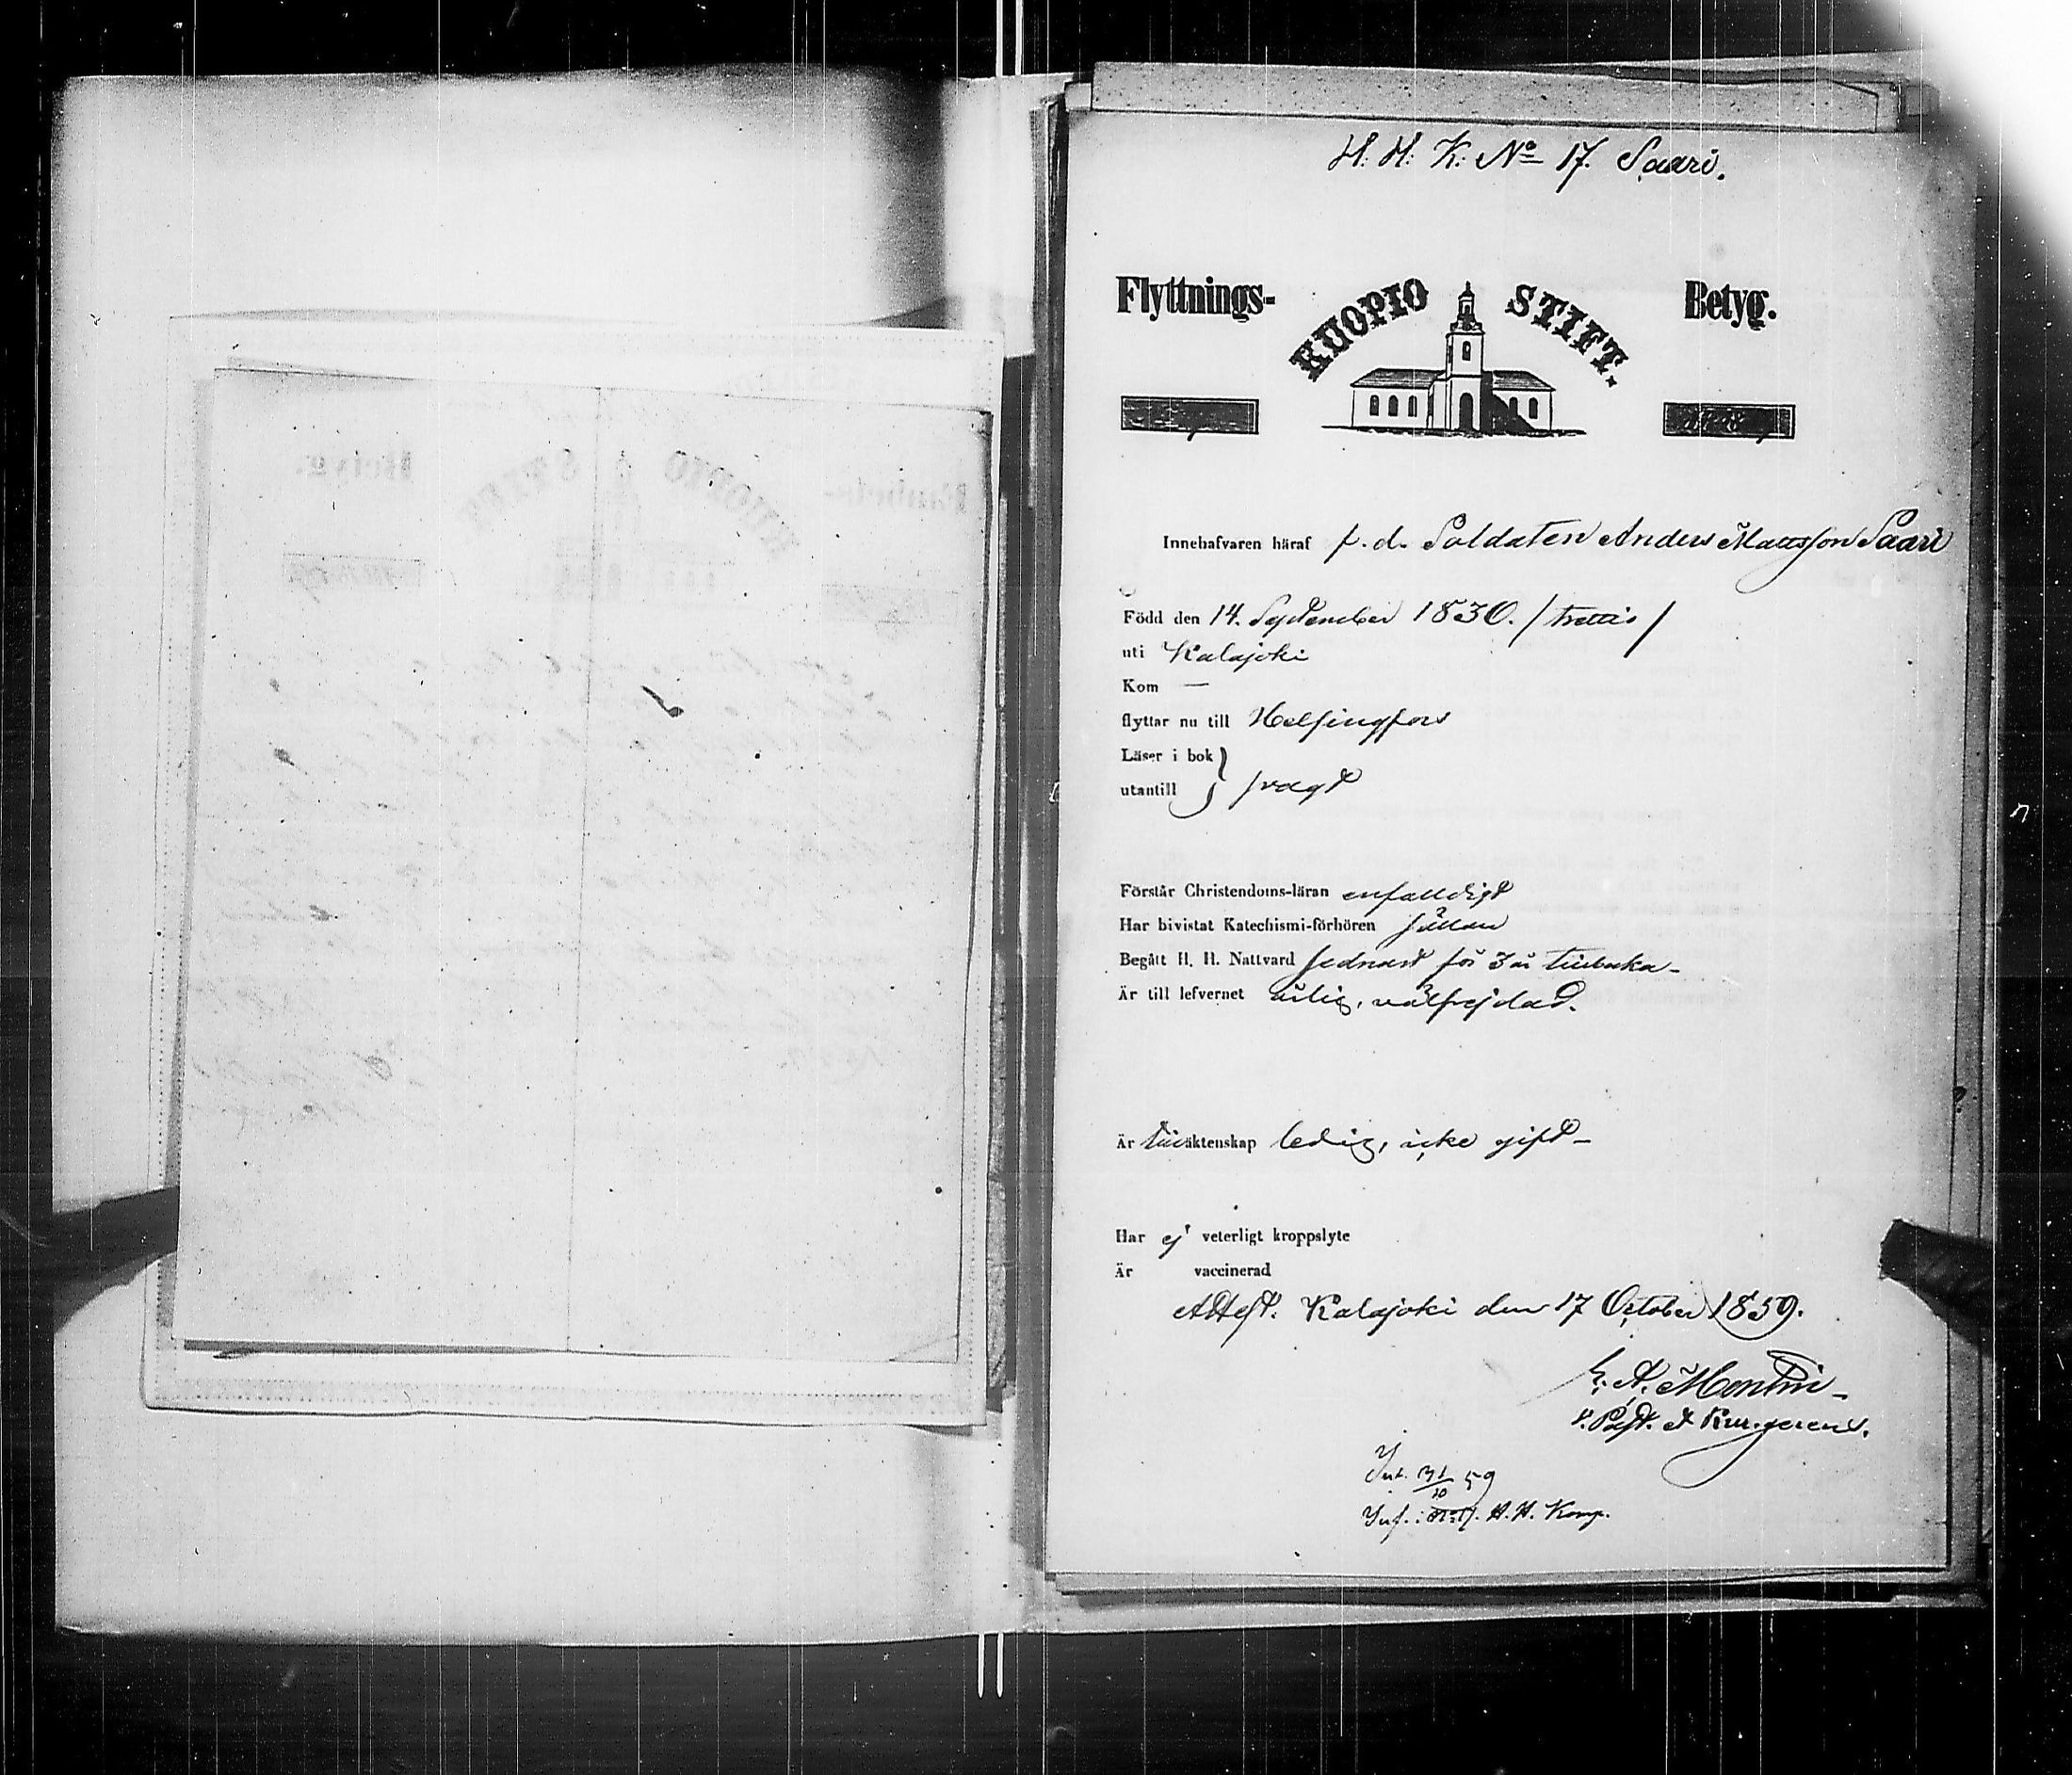 H. H. K. No 17. Saari.
Flyttnings- KUOPIO STIFT. Betyg.
Innehafvaren häraf f. d. Soldaten Anders Mattsson Saari
Född den 14. September 1830. / trettio /
uti Kalajoki
Kom —
flyttar nu till Helsingfors
Läser i bok }
utantill } svagt
Förstår Christendoms-läran enfalldigt
Har bivistat Katechismi-förhören sällan
Begått H. H. Nattvard sednast för 3 år tillbaka -
Är till lefvernet ärlig, välfrejdad.
Är till äktenskap ledig, icke gift -
Har ej veterligt kroppslyte
Är vaccinerad
Attest. Kalajoki den 17 October 1859.
A. Montin -
v. Past.
Int. 31/10 59
Inf. : H. H. Komp.